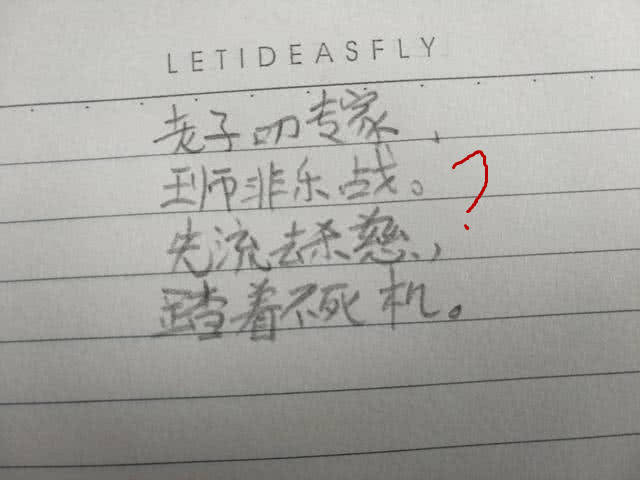 LETIDEASFLY
老子叨专家、
王师非乐战。
?
失流去杀慈,
踏着不死机。